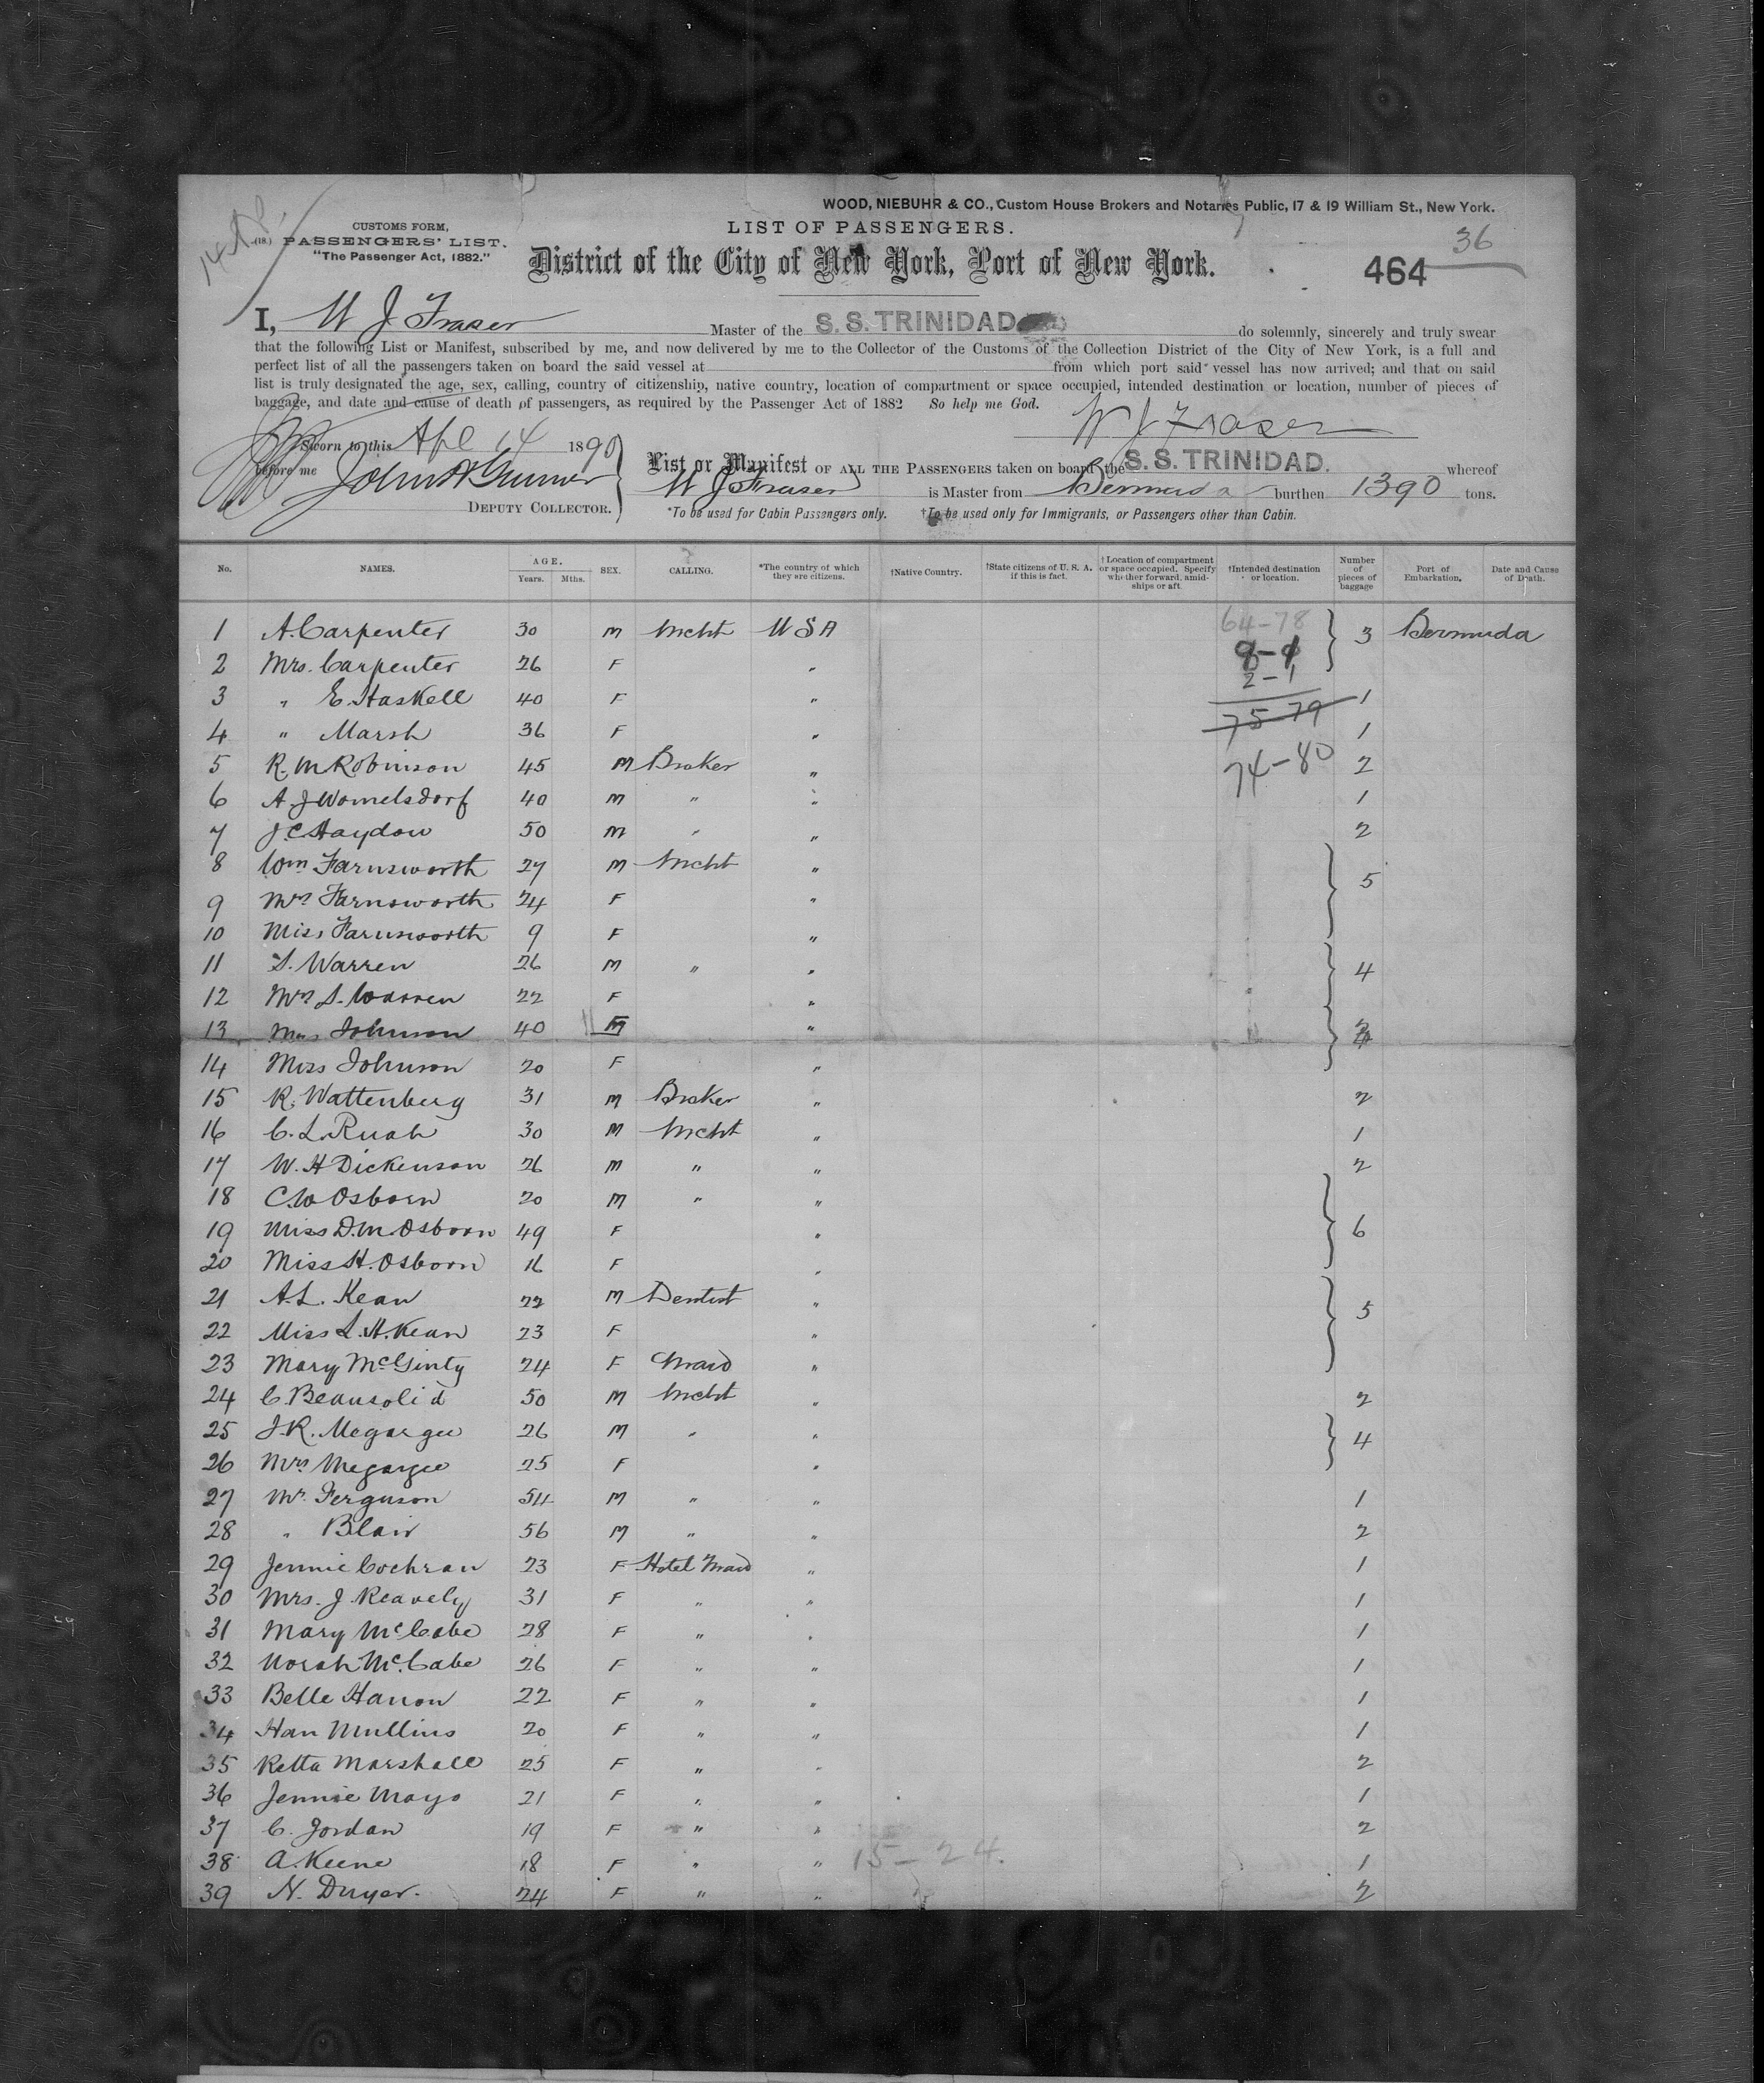 WOOD, NIEBUHR & CO., Custom House Brokers and Notaries Public, 17 & 19 William St., New York.
LIST OF PASSENGERS.
36
CUSTOMS FORM,
(18.) PASSENGERS' LIST.
"The Passenger Act, 1882."
District of the City of New York, Port of New York.
464
I, W J Fraser Master of the S. S. TRINIDAD do solemnly, sincerely and truly swear
that the following List or Manifest, subscribed by me, and now delivered by me to the Collector of the Customs of the Collection District of the City of New York, is a full and
perfect list of all the passengers taken on board the said vessel at from which port said vessel has now arrived; and that on said
list is truly designated the age, sex, calling, country of citizenship, native country, location of compartment or space occupied, intended destination or location, number of pieces of
baggage, and date and cause of death of passengers, as required by the Passenger Act of 1882 So help me God.
W J Fraser
Sworn to this Apl 14 1890
before me
DEPUTY COLLECTOR.
List or Manifest OF ALL THE PASSENGERS taken on board the S. S. TRINIDAD. whereof
W J Fraser is Master from Bermuda burthen 1390 tons.
*To be used for Cabin Passengers only. †To be used only for Immigrants, or Passengers other than Cabin.
No. NAMES. AGE. Years. Mths. SEX. CALLING. *The country of which they are citizens. †Native Country. †State citizens of U. S. A. if this is fact. †Location of compartment or space occupied. Specify whether forward, amidships or aft. †Intended destination or location. Number of pieces of baggage Port of Embarkation. Date and Cause of Death.
1 A. Carpenter 30 M Mcht U S A 64-78 3 Bermuda
2 Mrs. Carpenter 26 F "
2-1
3 " E. Haskell 40 F " 1
75-79
4 " Marsh 36 F " 1
5 R. M Robinson 45 M Broker " 74-80 2
6 A. J Womelsdorf 40 M " " 1
7 J C Haydon 50 M " " 2
8 Wm Farnsworth 27 M Mcht " 5
9 Mrs Farnsworth 24 F "
10 Miss Farnsworth 9 F "
11 S. Warren 26 M " " 4
12 Mrs S. Warren 22 F "
13 Mrs Johnson 40 F "
14 Miss Johnson 20 F "
15 R. Wattenberg 31 M Broker " 2
16 C. L. Ruah 30 M Mcht " 1
17 W. H Dickenson 26 M " " 2
18 C. W Osborn 20 M " "
19 Miss D. M. Osborn 49 F " 6
20 Miss H. Osborn 16 F "
21 A. L. Kean 22 M Dentist " 5
22 Miss L. H. Kean 23 F "
23 Mary McGinty 24 F Maid "
24 C. Beausolid 50 M Mcht " 2
25 J. R. Megargee 26 M " " 4
26 Mrs Megargee 25 F "
27 Mr. Ferguson 54 M " " 1
28 " Blair 56 M " " 2
29 Jennie Cochran 23 F Hotel Maid " 1
30 Mrs. J Reavely 31 F " " 1
31 Mary McCabe 28 F " " 1
32 Norah McCabe 26 F " " 1
33 Belle Hanon 22 F " " 1
34 Han Mullins 20 F " " 1
35 Retta Marshall 25 F " " 2
36 Jennie Mayo 21 F " " 1
37 C. Jordan 19 F " " 2
38 A. Keene 18 F " " 15-24. 1
39 N. Dwyer. 24 F " " 2